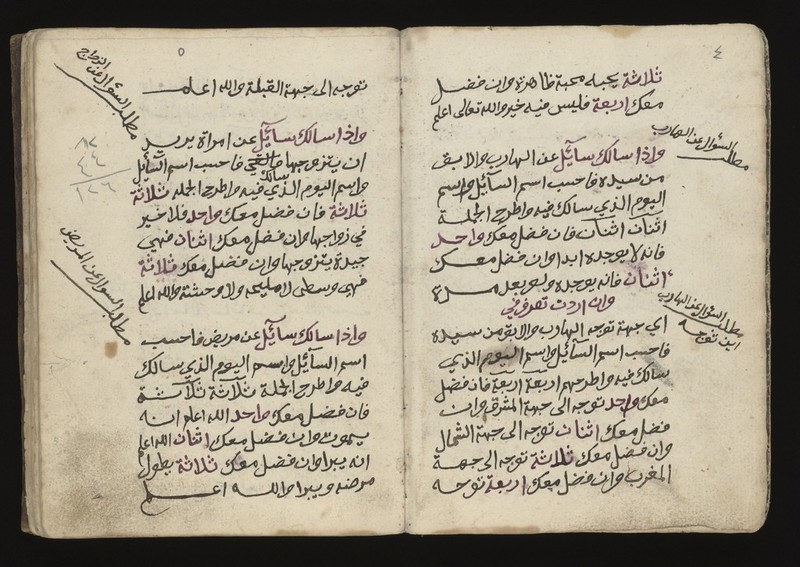 ٤
ثلاثة يحبه محبة ظاهرة وان فضل
معك اربعة فليس فيه خير والله تعالى اعلم
مطلب السؤال عن الهارب
واذا سالك سائل عن الهارب والابق
من سيده فاحسب اسم السائل واسم
اليوم الذي سالك فيه واطرح الجملة
اثنان اثنان فان فضل معك واحد
فانه لا يوجد ابدا وان فضل معك
اثنان فانه يوجد ولو بعد مدة
وان اردت تعرف في
مطلب السؤال عن الهارب
اين توجه
اي جهة توجه الهارب والابق من سيده
فاحسب اسم السائل واسم اليوم الذي
سالك فيه واطرحهم اربعة اربعة فان فضل
معك واحد توجه الى جهة المشرق وان
فضل معك اثنان توجه الى جهة الشمال
وان فضل معك ثلاثة توجه الى جهة
المغرب وان فضل معك اربعة توجه
٥
توجه الى جهة القبلة والله اعلم
مطلب السؤال عن الزواج
واذا سالك سائل عن امراة يريد
ان يتزوجها فاحسب اسم السائل
واسم اليوم الذي سالك فيه واطرح الجملة ثلاثة
ثلاثة فان فضل معك واحد فلا خير
في زواجها وان فضل معك اثنان فهي
جيدة يتزوجها وان فضل معك ثلاثة
فهي وسطى لا مليحه ولا وحشة والله اعلم
مطلب السوال عن المريض
واذا سالك سائل عن مريض فاحسب
اسم السائل واسم اليوم الذي سالك
فيه واطرح الجملة ثلاثة ثلاثة
فان فضل معك واحد الله اعلم انه
يموت وان فضل معك اثنان الله اعلم
انه يبرا وان فضل معك ثلاثة يطول
مرضه ويبرا والله اعلم